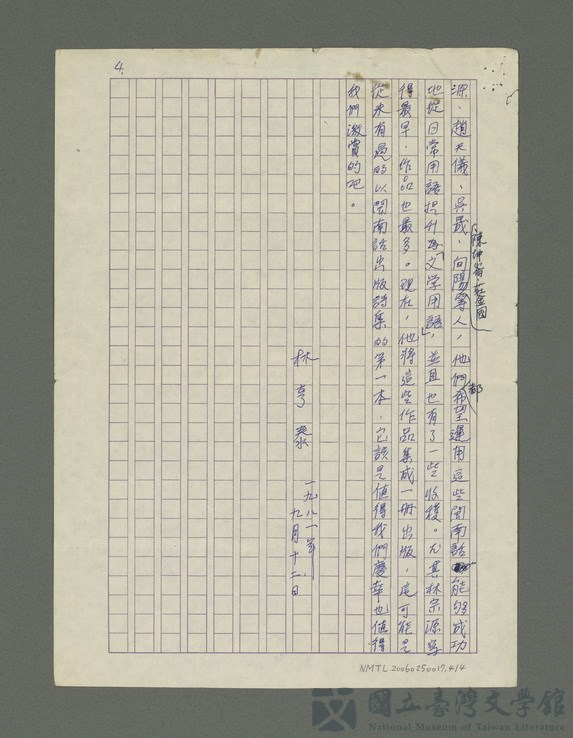 4.
源、趙天儀、吳晟、向陽等人,他們都希望運用這些閩南話能夠成功
陳坤崙、莊金國
地從日常用語提升為「文学用語」,並且也有了一些收穫。尤其林宗源寫
得最早,作品也最多。現在,他將這些作品集成一冊出版,這可能是
從來有過的以閩南話出版詩集的第一本,它該是值得我們慶幸也值得
我們激賞的吧。
林亨泰
一九八一年
九月十二日
NMTL20060250017.4/4
國立臺灣文學館
National Museum of Taiwan Literature